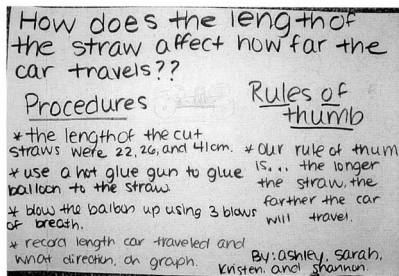 How does the length of
the straw affect how far the
car travels??
Procedures
* the length of the cut
straws were 22, 26, and 41cm.
* use a hot glue gun to glue
balloon to the straw.
* blow the balloon up using 3 blows
of breath.
* record length car traveled and
what direction, on graph.
Rules of
thumb
* Our rule of thum
is... the longer
the straw, the
farther the car
will travel.
By: ashley, sarah,
Kristen, and shannon